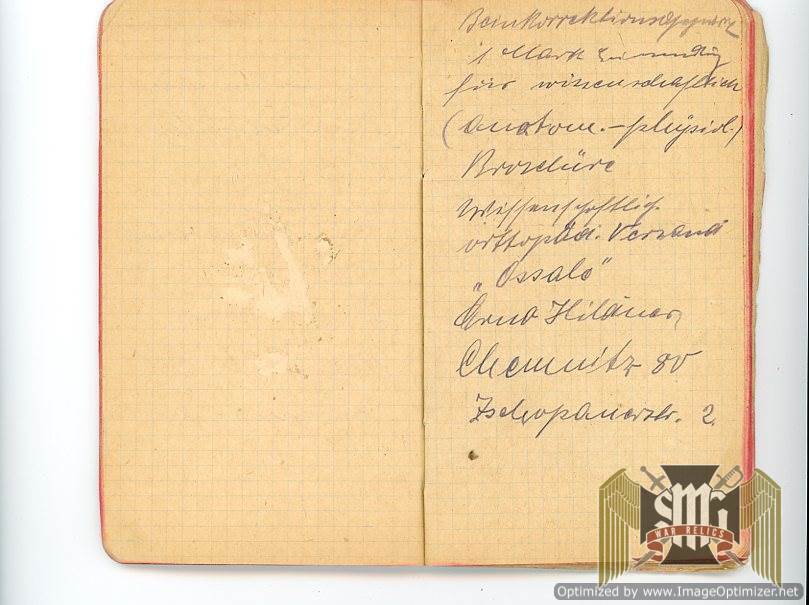 Beinkorrektions
1 Mark
für wissenschaftlich
(anatom. - physiol.)
Broschüre
Wissenschaftlich
orthopäd. Versand
„Ossale"
Arno Hildner,
Chemnitz 80
Zschopauerstr. 2.
SMG
WAR RELICS
Optimized by www.ImageOptimizer.net